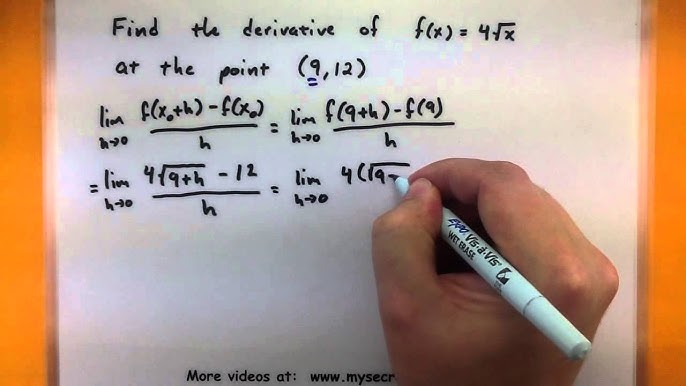 Find the derivative of f(x) = 4√x
at the point (9,12)
lim h→0 f(x₀+h) - f(x₀) / h = lim h→0 f(9+h) - f(9) / h
= lim h→0 4√9+h - 12 / h = lim h→0 4(√9
EXPO Vis-à-Vis
WET ERASE
More videos at: www.mysecr